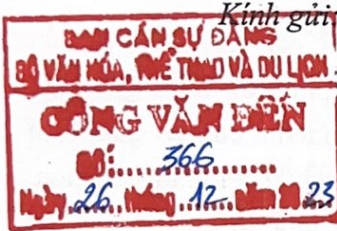 Kính gửi:
BAN CÁN SỰ ĐẢNG
BỘ VĂN HÓA, THỂ THAO VÀ DU LỊCH
CÔNG VĂN ĐẾN
Số: 366
Ngày 26 tháng 12 năm 20 23